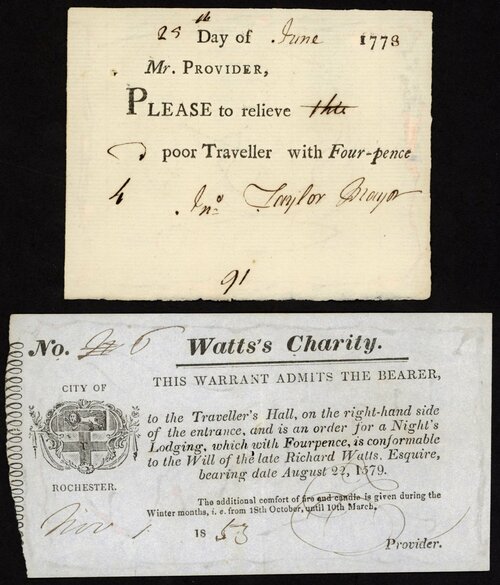 25th Day of June 1778
Mr. PROVIDER,
PLEASE to relieve
poor Traveller with Four-pence
4 Jno. Taylor Mayor
91
No. 6 Watts's Charity.
THIS WARRANT ADMITS THE BEARER,
CITY OF
ROCHESTER.
to the Traveller's Hall, on the right-hand side
of the entrance, and is an order for a Night's
Lodging, which with Fourpence, is conformable
to the Will of the late Richard Watts. Esquire,
bearing date August 22, 1579.
The additional comfort of fire and candle is given during the
Winter months, i. e. from 18th October, until 10th March.
Nov 1 1853
Provider.